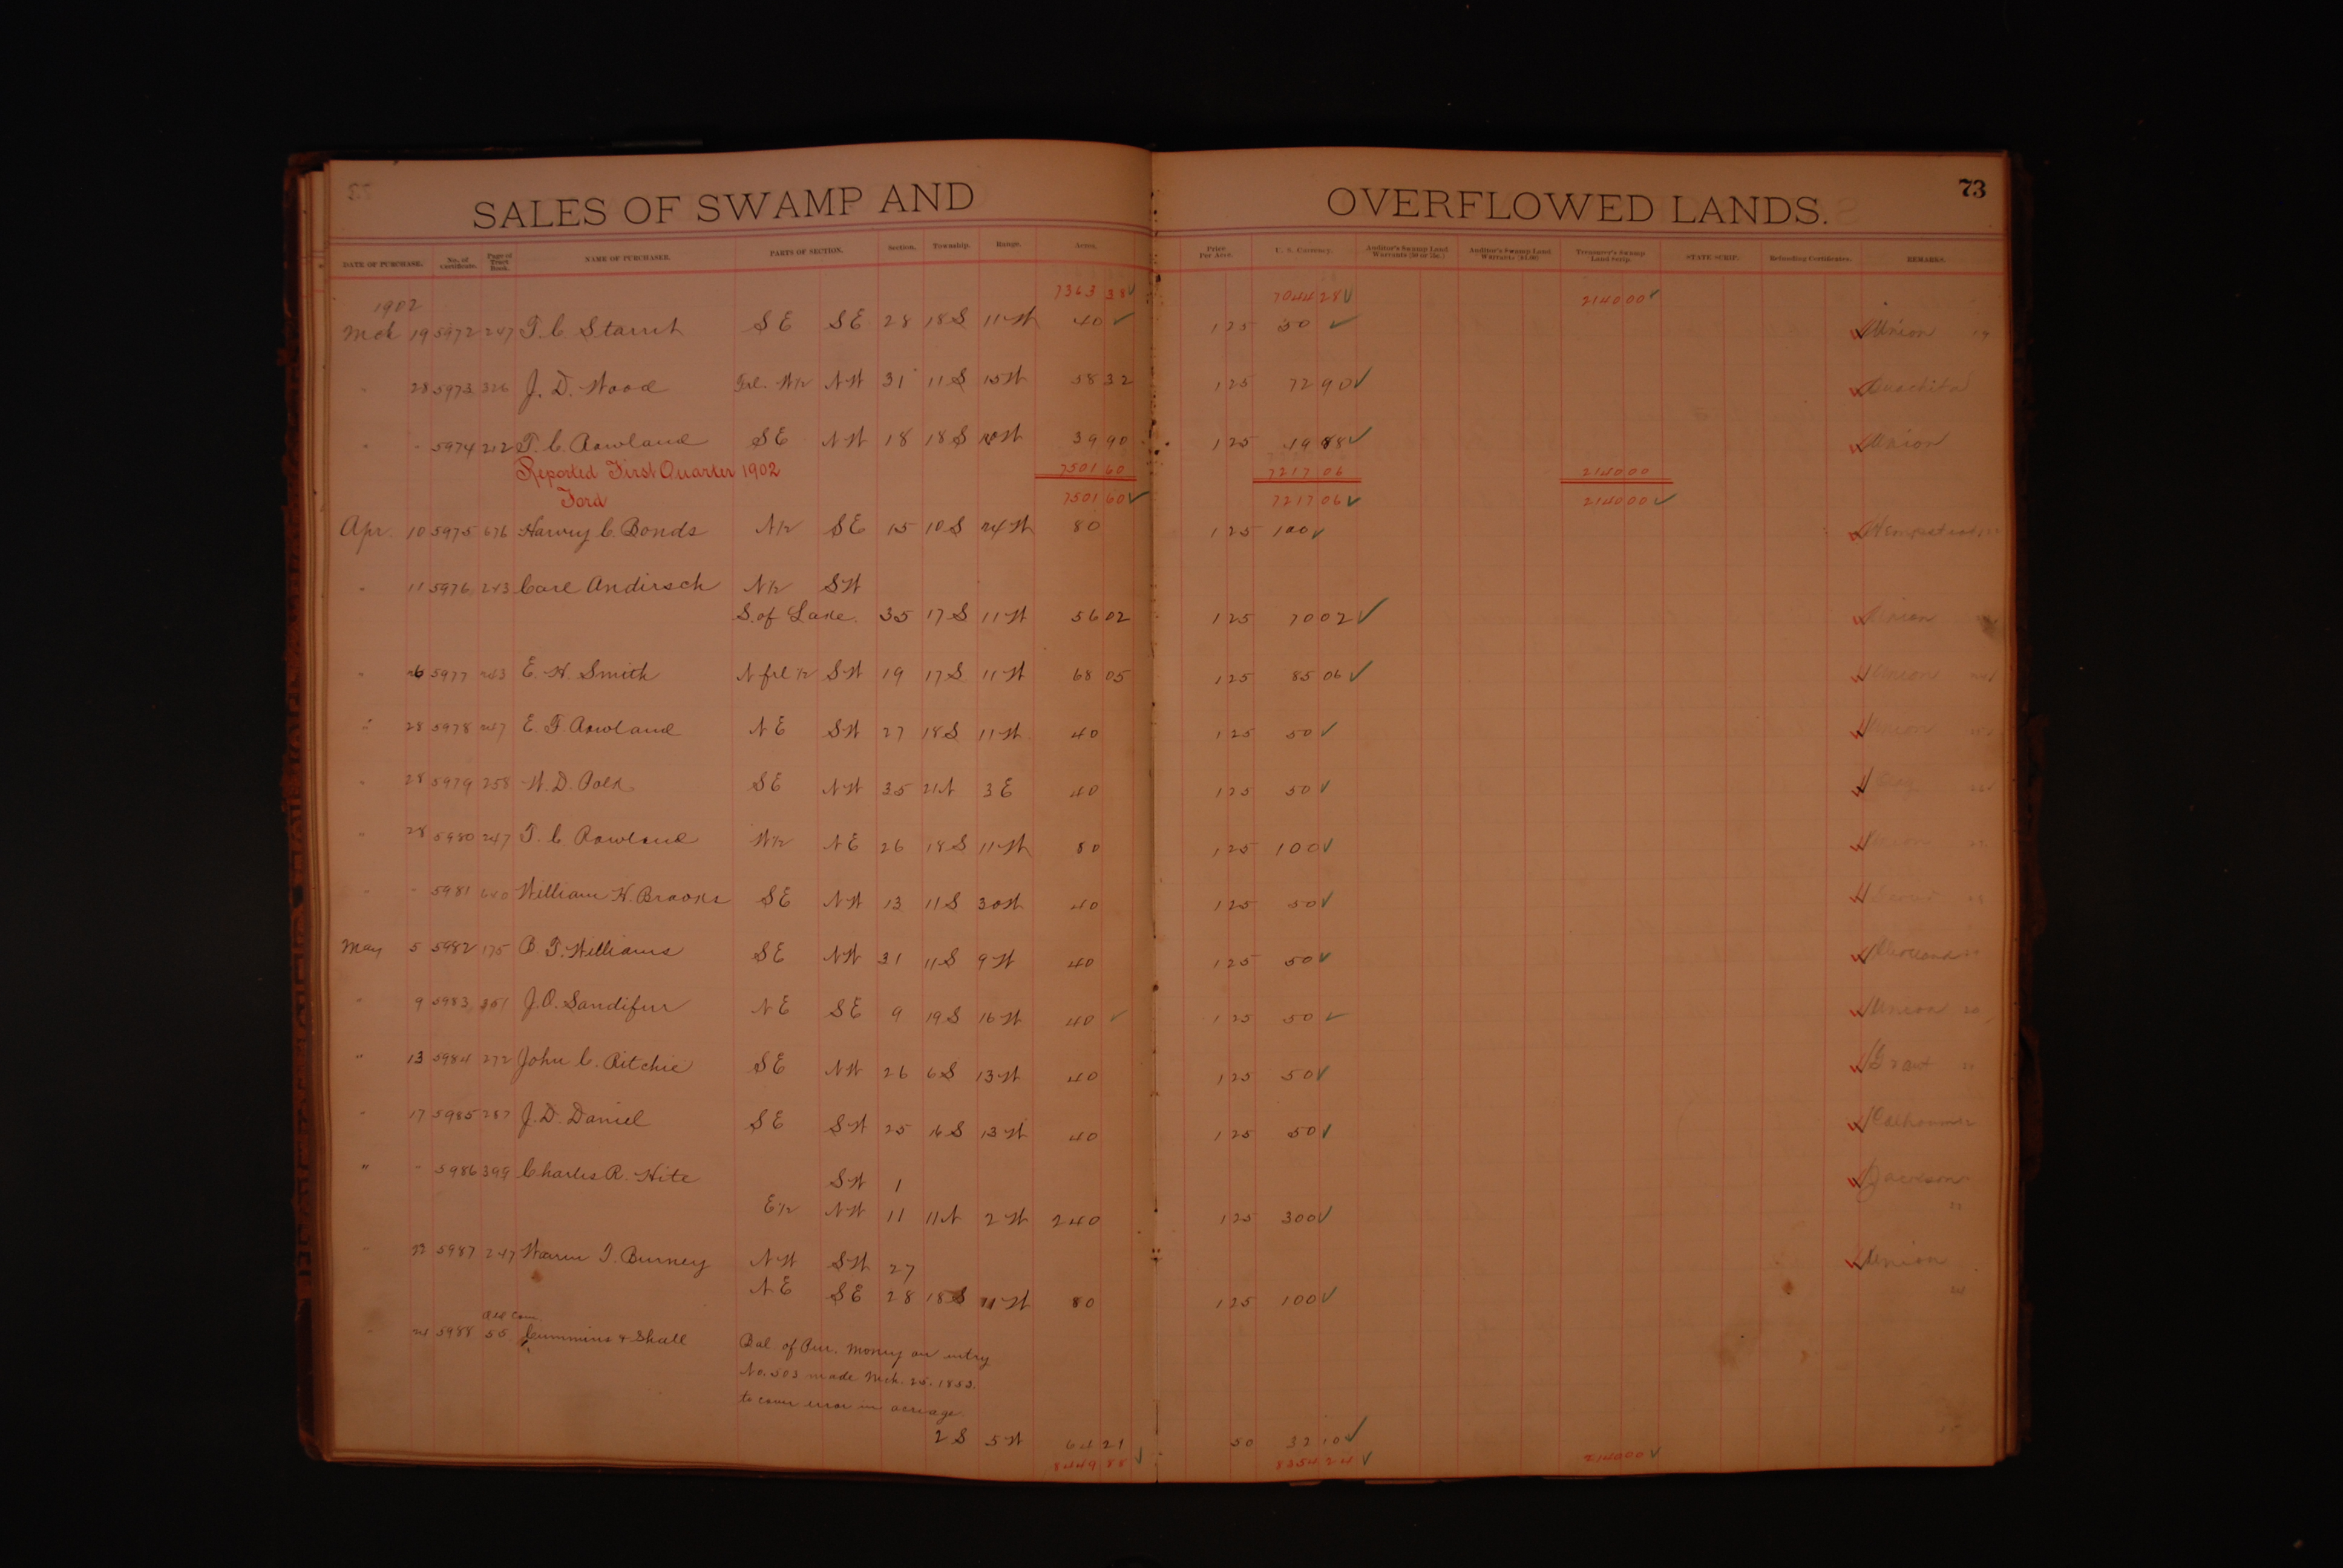 SALES OF SWAMP AND OVERFLOWED LANDS. 73
DATE OF PURCHASE. No. of Certificate. Page of Tract Book. NAME OF PURCHASER. PARTS OF SECTION. Section. Township. Range. Acres. Price Per Acre. U. S. Currency. Auditor's Swamp Land Warrants (50 or 75c.) Auditor's Swamp Land Warrants Treasurer's Swamp Land Scrip. STATE SCRIP. Refunding Certificates. REMARKS.
7363 38 ✓ 7044 28 ✓ 2140 00 ✓
1902
Mch 19 5972 247 T. C. Starrit SE SE 28 18S 11W 40 ✓ 1 25 50 ✓ Union
" 28 5973 326 J. D. Wood Frl. W½ NW 31 11S 15W 58 32 1 25 72 90 ✓ Ouachita
" " 5974 212 T. C. Rowland SE NW 18 18S 10W 39 90 1 25 49 88 ✓ Union
Reported First Quarter 1902 7501 60 7217 06 2140 00
Ford 7501 60 ✓ 7217 06 ✓ 2140 00 ✓
Apr. 10 5975 676 Harvey C. Bonds N½ SE 15 10S 24W 80 1 25 100 ✓ Hempstead
" 11 5976 243 Carl Andirsch N½ SW
S. of Lake. 35 17S 11W 56 02 1 25 70 02 ✓ Union
" 26 5977 243 E. H. Smith N frl ½ SW 19 17S 11W 68 05 1 25 85 06 ✓ Union
" 28 5978 247 E. T. Rowland NE SW 27 18S 11W 40 1 25 50 ✓ Union
" 28 5979 258 W. D. Polk SE NW 35 21N 3E 40 1 25 50 ✓
" 28 5980 247 T. C. Rowland W½ NE 26 18S 11W 80 1 25 100 ✓ Union
" " 5981 640 William H. Brooks SE NW 13 11S 30W 40 1 25 50 ✓ Sevier
May 5 5982 175 B. T. Williams SE NW 31 11S 9W 40 1 25 50 ✓
" 9 5983 351 J. O. Sandifur NE SE 9 19S 16W 40 ✓ 1 25 50 ✓ Union
" 13 5984 272 John C. Ritchie SE NW 26 6S 13W 40 1 25 50 ✓ Grant
" 17 5985 287 J. D. Daniel SE SW 25 16S 13W 40 1 25 50 ✓ Calhoun
" " 5986 399 Charles R. Hite SW 1 Jackson
E½ NW 11 11N 2W 240 1 25 300 ✓
" 22 5987 247 Warren T. Burney NW SW 27 Union
NE SE 28 18S 11W 80 1 25 100 ✓
Old Com.
" 24 5988 55 Cummins & Shall Bal. of Pur. Money on entry
No. 503 made Mch. 25. 1853.
to cover error in acreage.
2S 5W 64 21 50 32 10 ✓
8449 88 ✓ 8354 24 ✓ 2140 00 ✓